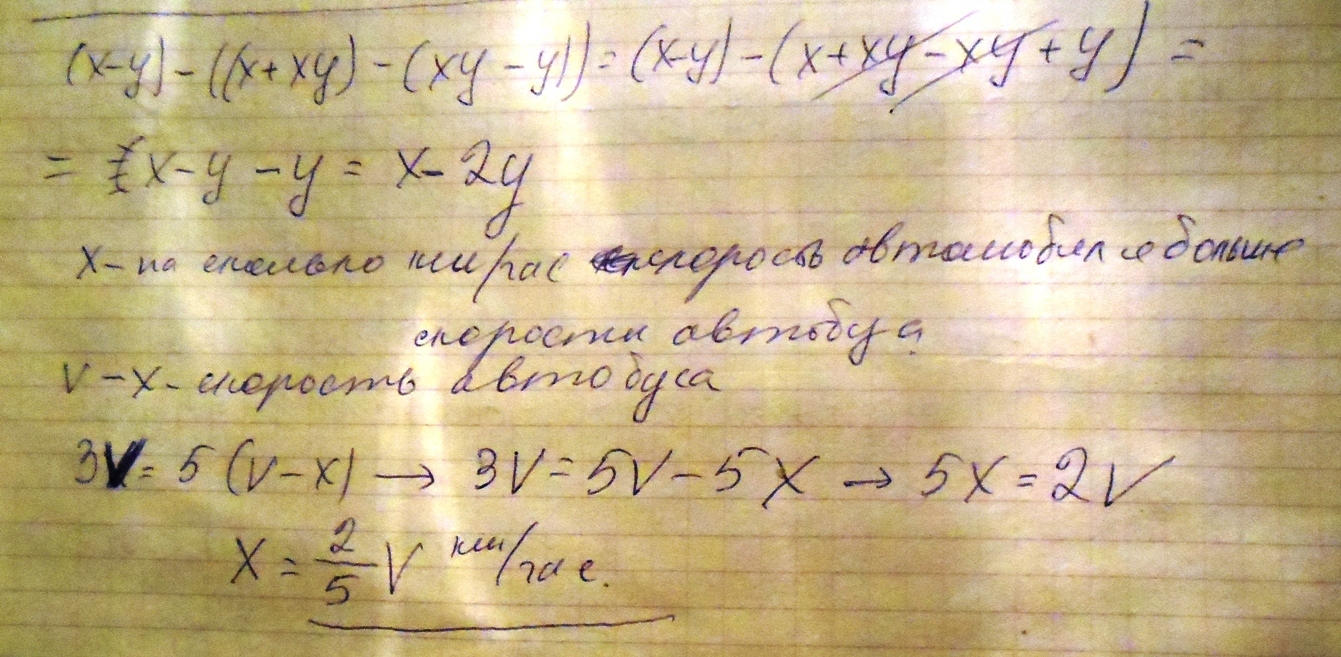 (x-y)-((x+xy)-(xy-y))=(x-y)-(x+xy-xy+y)=
= x-y-y= x-2y
x- на сколько км/час скорость автомобиля больше
скорости автобуса
V-x- скорость автобуса
3V= 5(V-x) → 3V=5V-5x → 5x=2V
x= 2/5 V км/час.